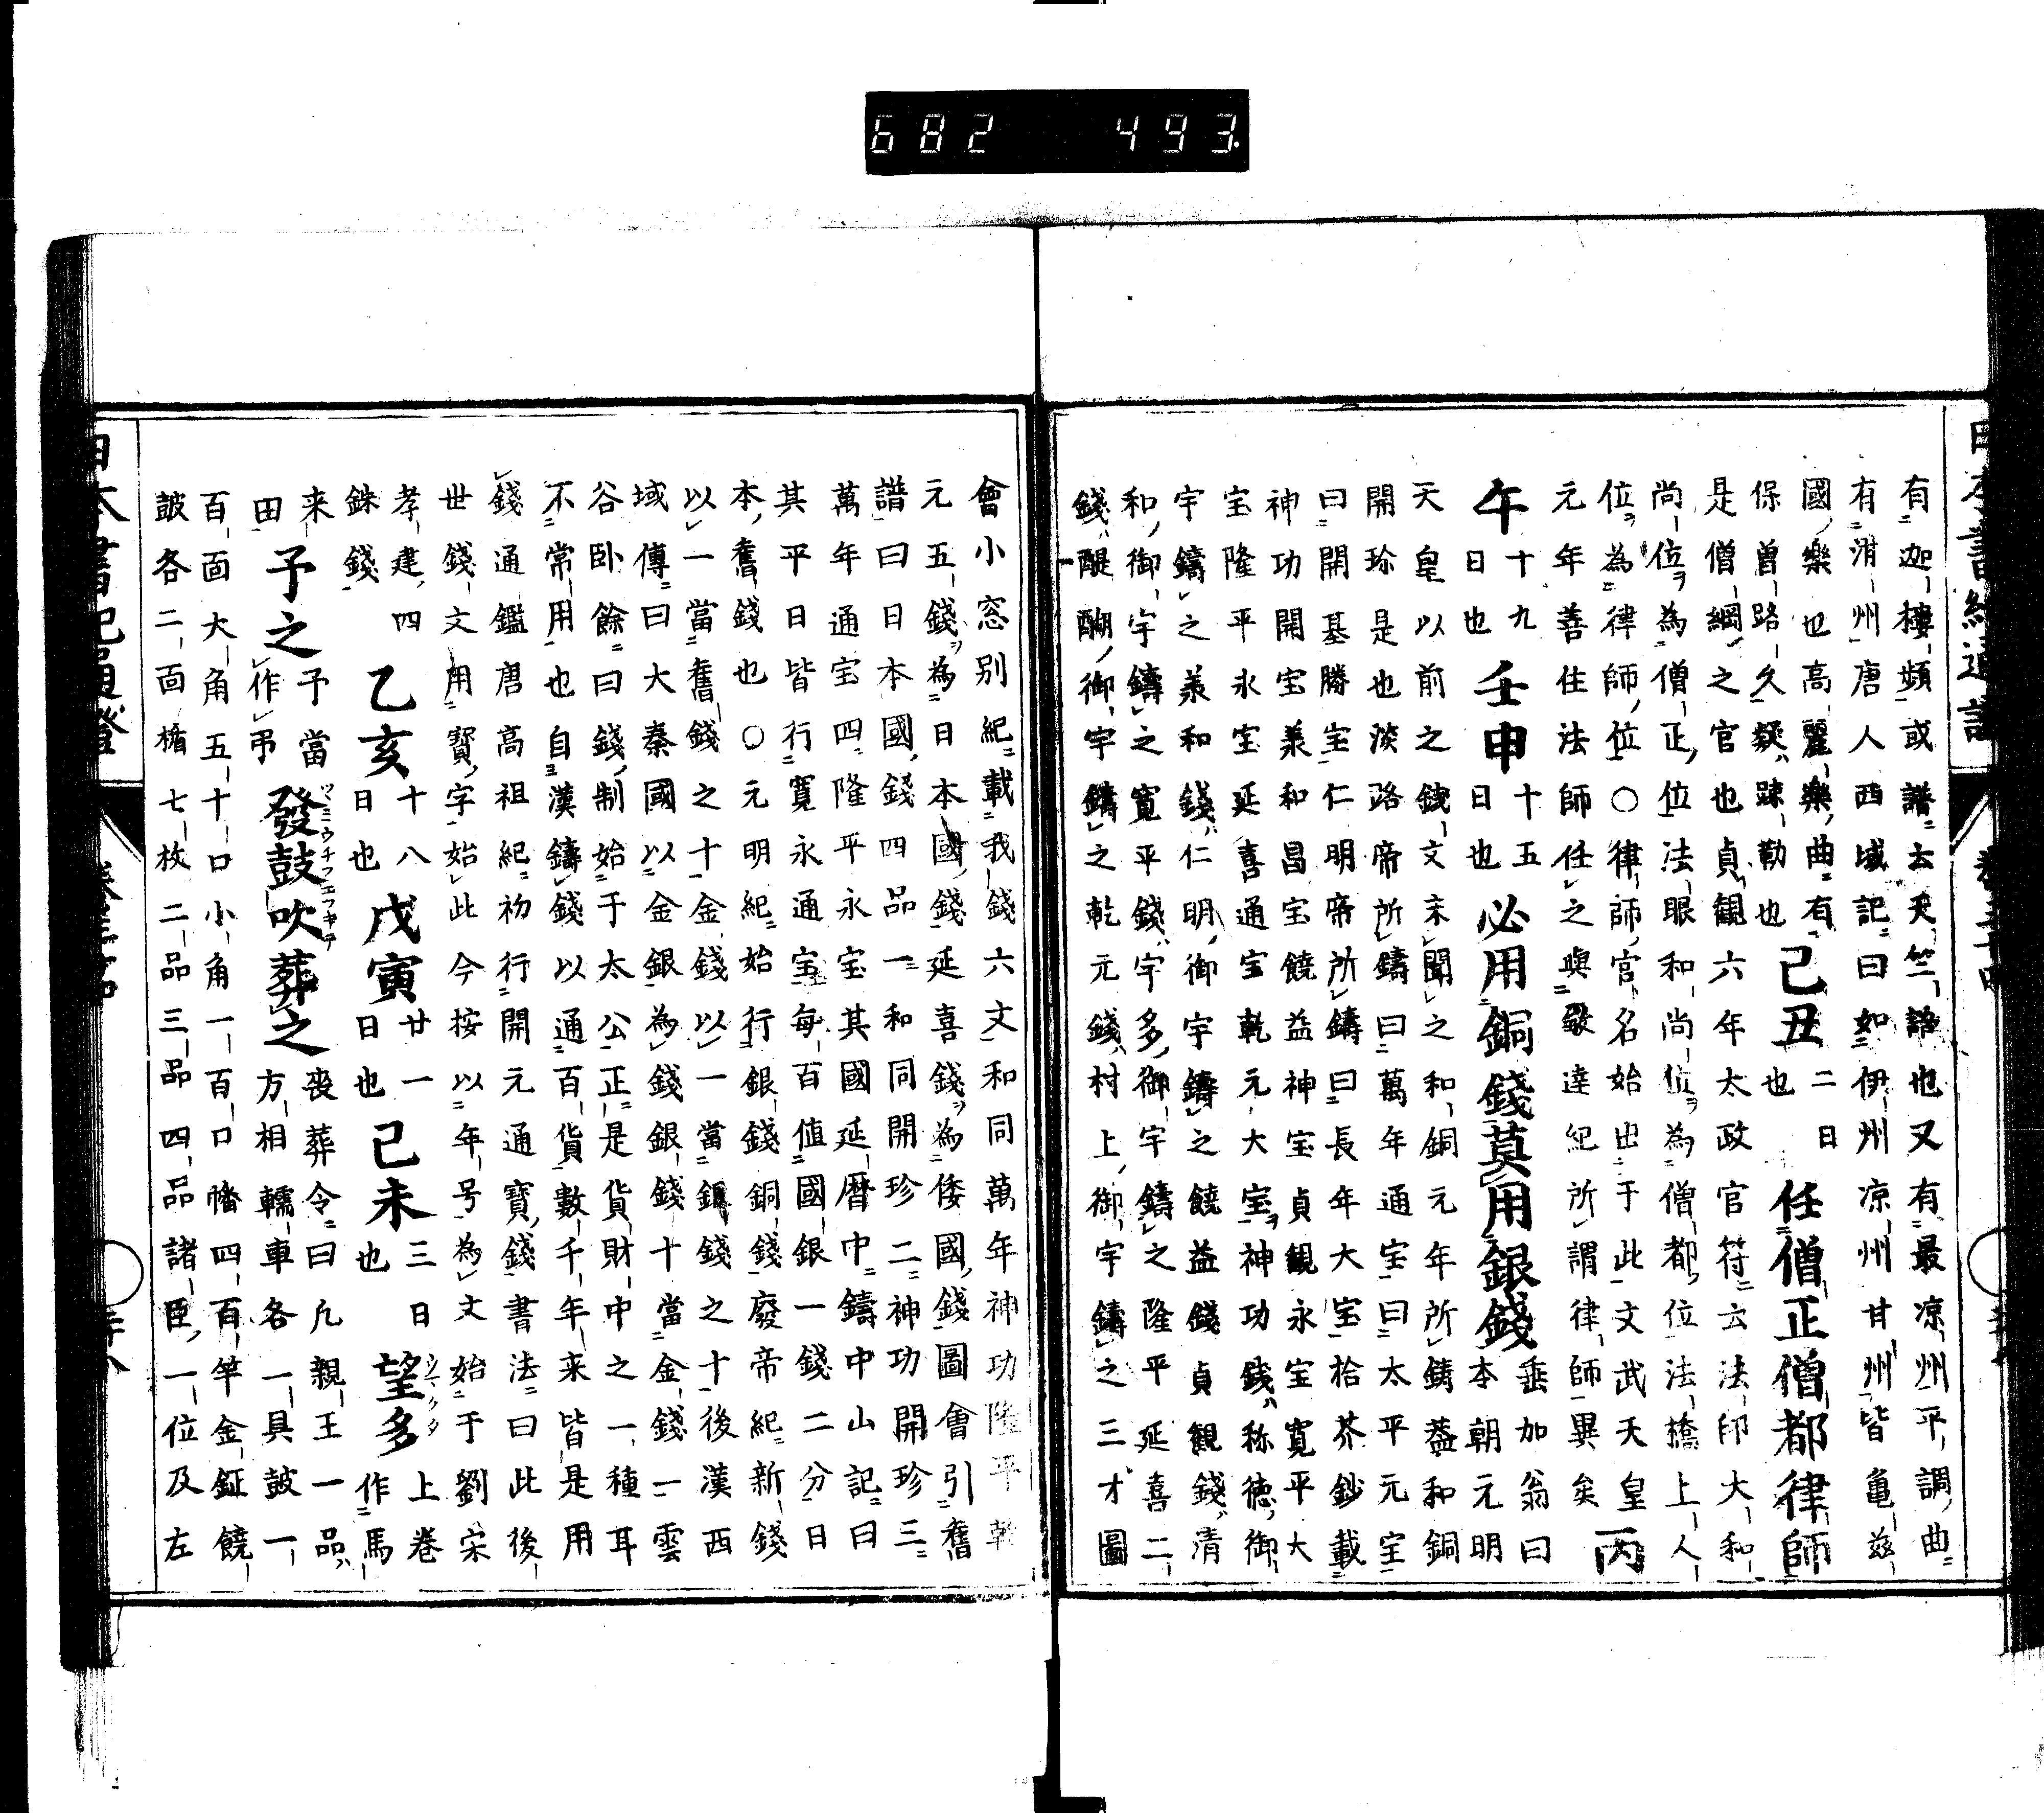 682 493
有迦樓頻或譜云天竺語也又有最凉州平調曲
有渭州唐人西域記曰如伊州凉州甘州皆亀茲
國樂也高麗樂曲有己丑二日也任僧正僧都律師
保曽路久疑踈勒也
是僧綱之官也貞観六年太政官符云法印大和
尚位為僧正位法眼和尚位為僧都位法橋上人
位為律師位○律師官名始出于此文武天皇
元年善住法師任之與敬達紀所謂律師異矣丙
午十九日也壬申十五日也必用銅錢莫用銀錢垂加翁曰本朝元明
天皇以前之錢文未聞之和銅元年所鋳蓋和銅
開珎是也淡路帝所鑄曰萬年通宝曰太平元宝
曰開基勝宝仁明帝所鑄曰長年大宝拾芥鈔載
神功開宝羕和昌宝饒益神宝貞観永宝寛平大
宝隆平永宝延喜通宝乾元大宝神功錢称徳御
宇鑄之羕和錢仁明御宇鑄之饒益錢貞観錢清
和御宇鑄之寛平錢宇多御宇鑄之隆平延喜二
錢醍醐御宇鑄之乾元錢村上御宇鑄之三才圖
會小窓別紀載我錢六文和同萬年神功隆平乾
元五錢為日本國錢延喜錢為倭國錢圖會引舊
譜曰日本國錢四品一和同開珍二神功開珍三
萬年通宝四隆平永宝其國延暦中鑄中山記曰
其平日皆行寛永通宝每百值國銀一錢二分日
本舊錢也○元明紀始行銀錢銅錢廢帝紀新錢
以一當舊錢之十金錢以一當銀錢之十後漢西
域傳曰大秦國以金銀為錢銀錢十當金錢一雲
谷卧餘曰錢制始于太公正是貨財中之一種耳
不常用也自漢鑄錢以通百貨數千年来皆是用
錢通鑑唐高祖紀初行開元通寶錢書法曰此後
世錢文用寳字始此今按以年号為文始于劉宋
孝建四銖錢乙亥十八日也戊寅廿一日也己未三日也望多上卷作馬
来田予之予當作弔發鼓吹葬之喪葬令曰凡親王一品
方相轜車各一具皷一
百面大角五十口小角一百口幡四百竿金鉦饒
皷各二面楯七枚二品三品四品諸臣一位及左